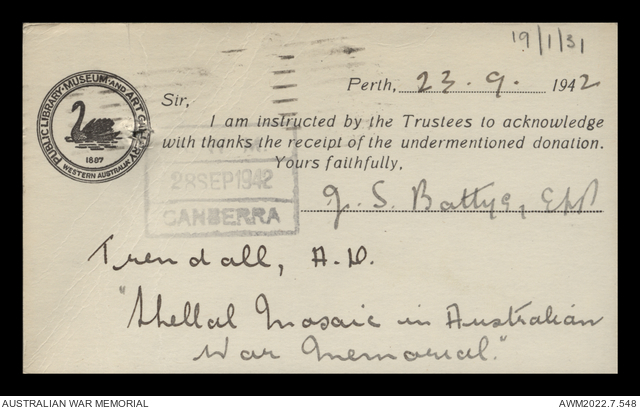 19/1/31
Perth, 23. 9. 1942
PUBLIC LIBRARY·MUSEUM·AND ART GALLERY
1887
WESTERN AUSTRALIA
Sir,
I am instructed by the Trustees to acknowledge
with thanks the receipt of the undermentioned donation.
Yours faithfully,
28 SEP 1942
CANBERRA
J. S. Battye,
Trendall, A. D.
"Shellal Mosaic in Australian
War Memorial."
AUSTRALIAN WAR MEMORIAL
AWM2022.7.548